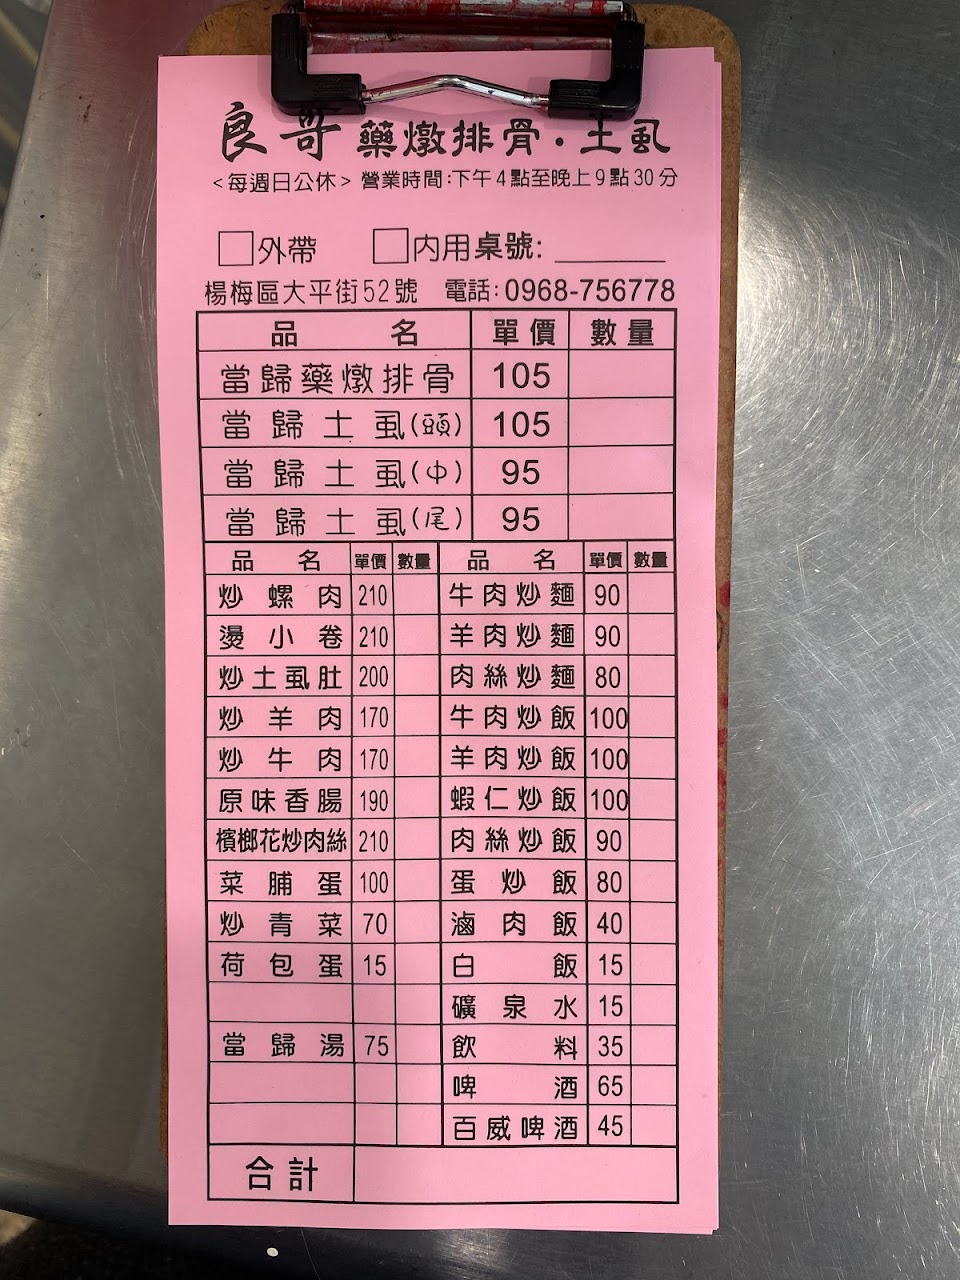 良哥 藥燉排骨.土虱
<每週日公休> 營業時間:下午4點至晚上9點30分
□外帶 □內用桌號:
楊梅區大平街52號 電話:0968-756778
品名 單價 數量
當歸藥燉排骨 105
當歸土虱(頭) 105
當歸土虱(中) 95
當歸土虱(尾) 95
品名 單價 數量 品名 單價 數量
炒螺肉 210 牛肉炒麵 90
燙小卷 210 羊肉炒麵 90
炒土虱肚 200 肉絲炒麵 80
炒羊肉 170 牛肉炒飯 100
炒牛肉 170 羊肉炒飯 100
原味香腸 190 蝦仁炒飯 100
檳榔花炒肉絲 210 肉絲炒飯 90
菜脯蛋 100 蛋炒飯 80
炒青菜 70 滷肉飯 40
荷包蛋 15 白飯 15
礦泉水 15
當歸湯 75 飲料 35
啤酒 65
百威啤酒 45
合計